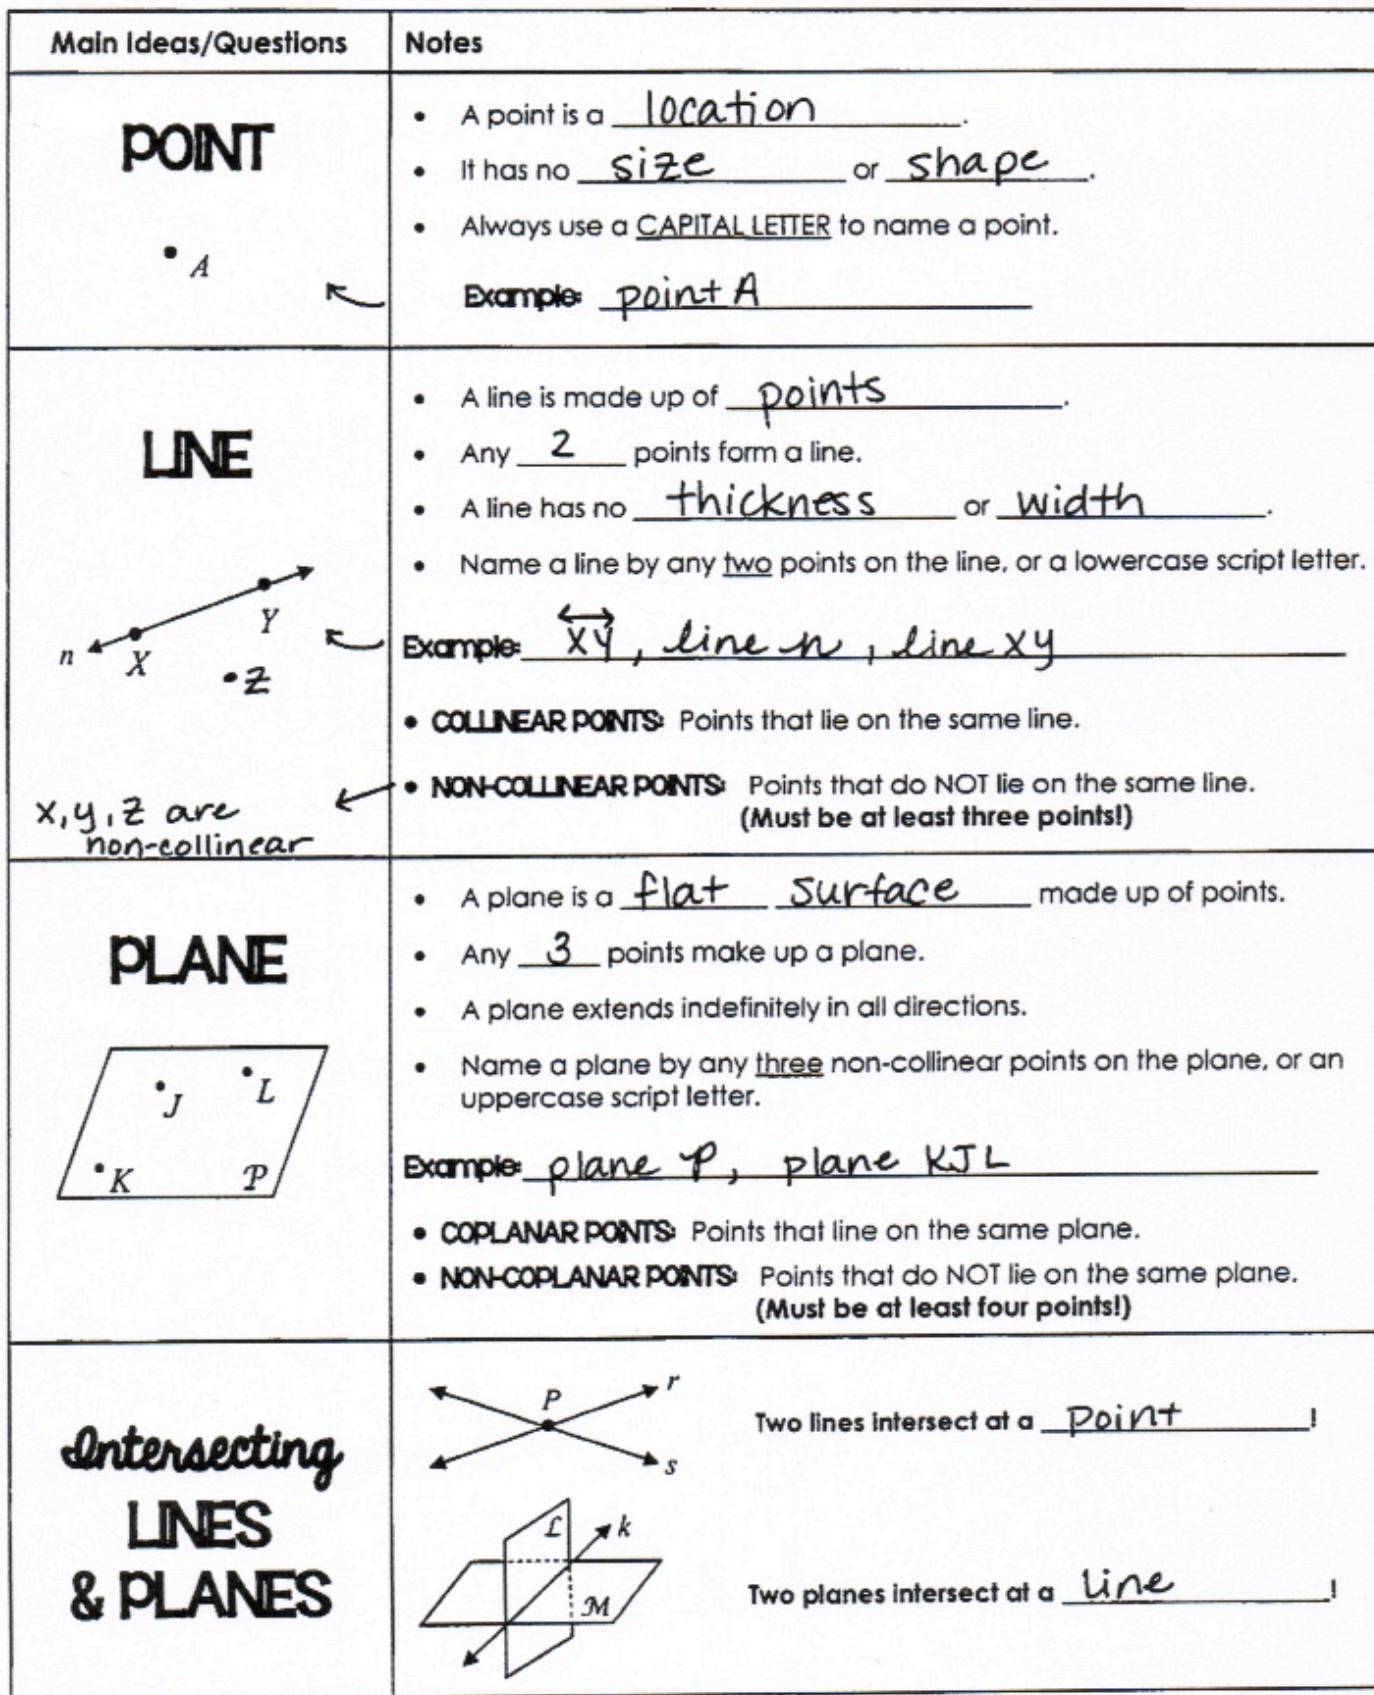 Main Ideas/Questions
Notes
POINT
A
• A point is a location.
• It has no size or shape.
• Always use a CAPITAL LETTER to name a point.
Example: point A
LINE
n
X
Y
Z
x, y, z are
non-collinear
• A line is made up of points.
• Any 2 points form a line.
• A line has no thickness or width.
• Name a line by any two points on the line, or a lowercase script letter.
Example: XY, line n, line xy
• COLLINEAR POINTS: Points that lie on the same line.
• NON-COLLINEAR POINTS: Points that do NOT lie on the same line.
(Must be at least three points!)
PLANE
J
L
K
P
• A plane is a flat surface made up of points.
• Any 3 points make up a plane.
• A plane extends indefinitely in all directions.
• Name a plane by any three non-collinear points on the plane, or an
uppercase script letter.
Example: plane P, plane KJL
• COPLANAR POINTS: Points that line on the same plane.
• NON-COPLANAR POINTS: Points that do NOT lie on the same plane.
(Must be at least four points!)
Intersecting
LINES
& PLANES
P
r
s
Two lines intersect at a point!
L
k
M
Two planes intersect at a line!